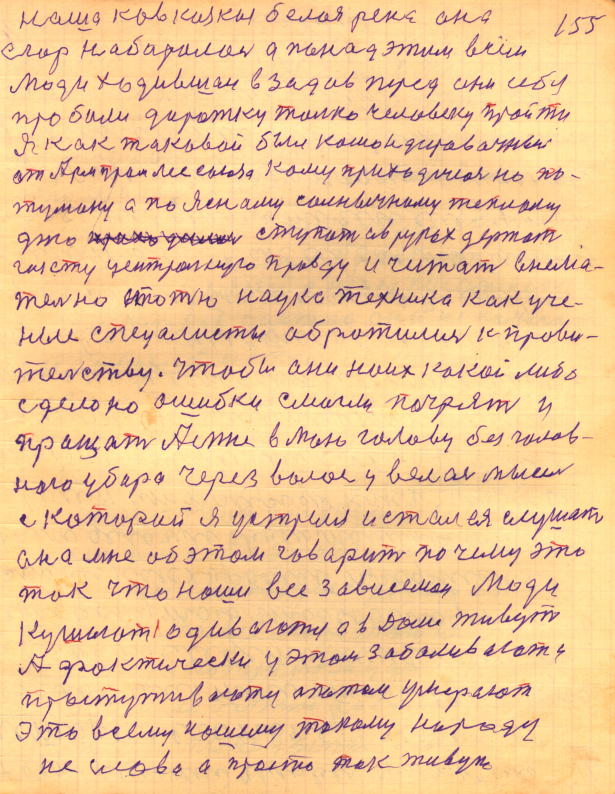 наша ковкаская белая река она 155
с гор набаралася а понад этим всем
люди ходившаи взадов перед они себя
пробили дорожку толко человеку пройти
Я как таковой был командированный
от Армпромлессоюза кому приходился но по-
туману а по ясному солнычному теплому
дню ступат в руках держат
газету центролную правду и читат внема-
телно статю наука техника как уче-
ные спецалисты обротилися к прови-
телству. Чтобы они на их какой либо
сделоно ошибки смогли
пращат А мне в мою голову без голов-
ного убара через волос у
с которой я устрелися стался слушат
она мне об этом говарит почему это
так что наши все зависемаи Люди
Кушиют одиваются а в Доми живут
А фактически у этом заболивают и
простуживаюты а потом умерают
Это всему нашему такому народу
не слова а просто так живут